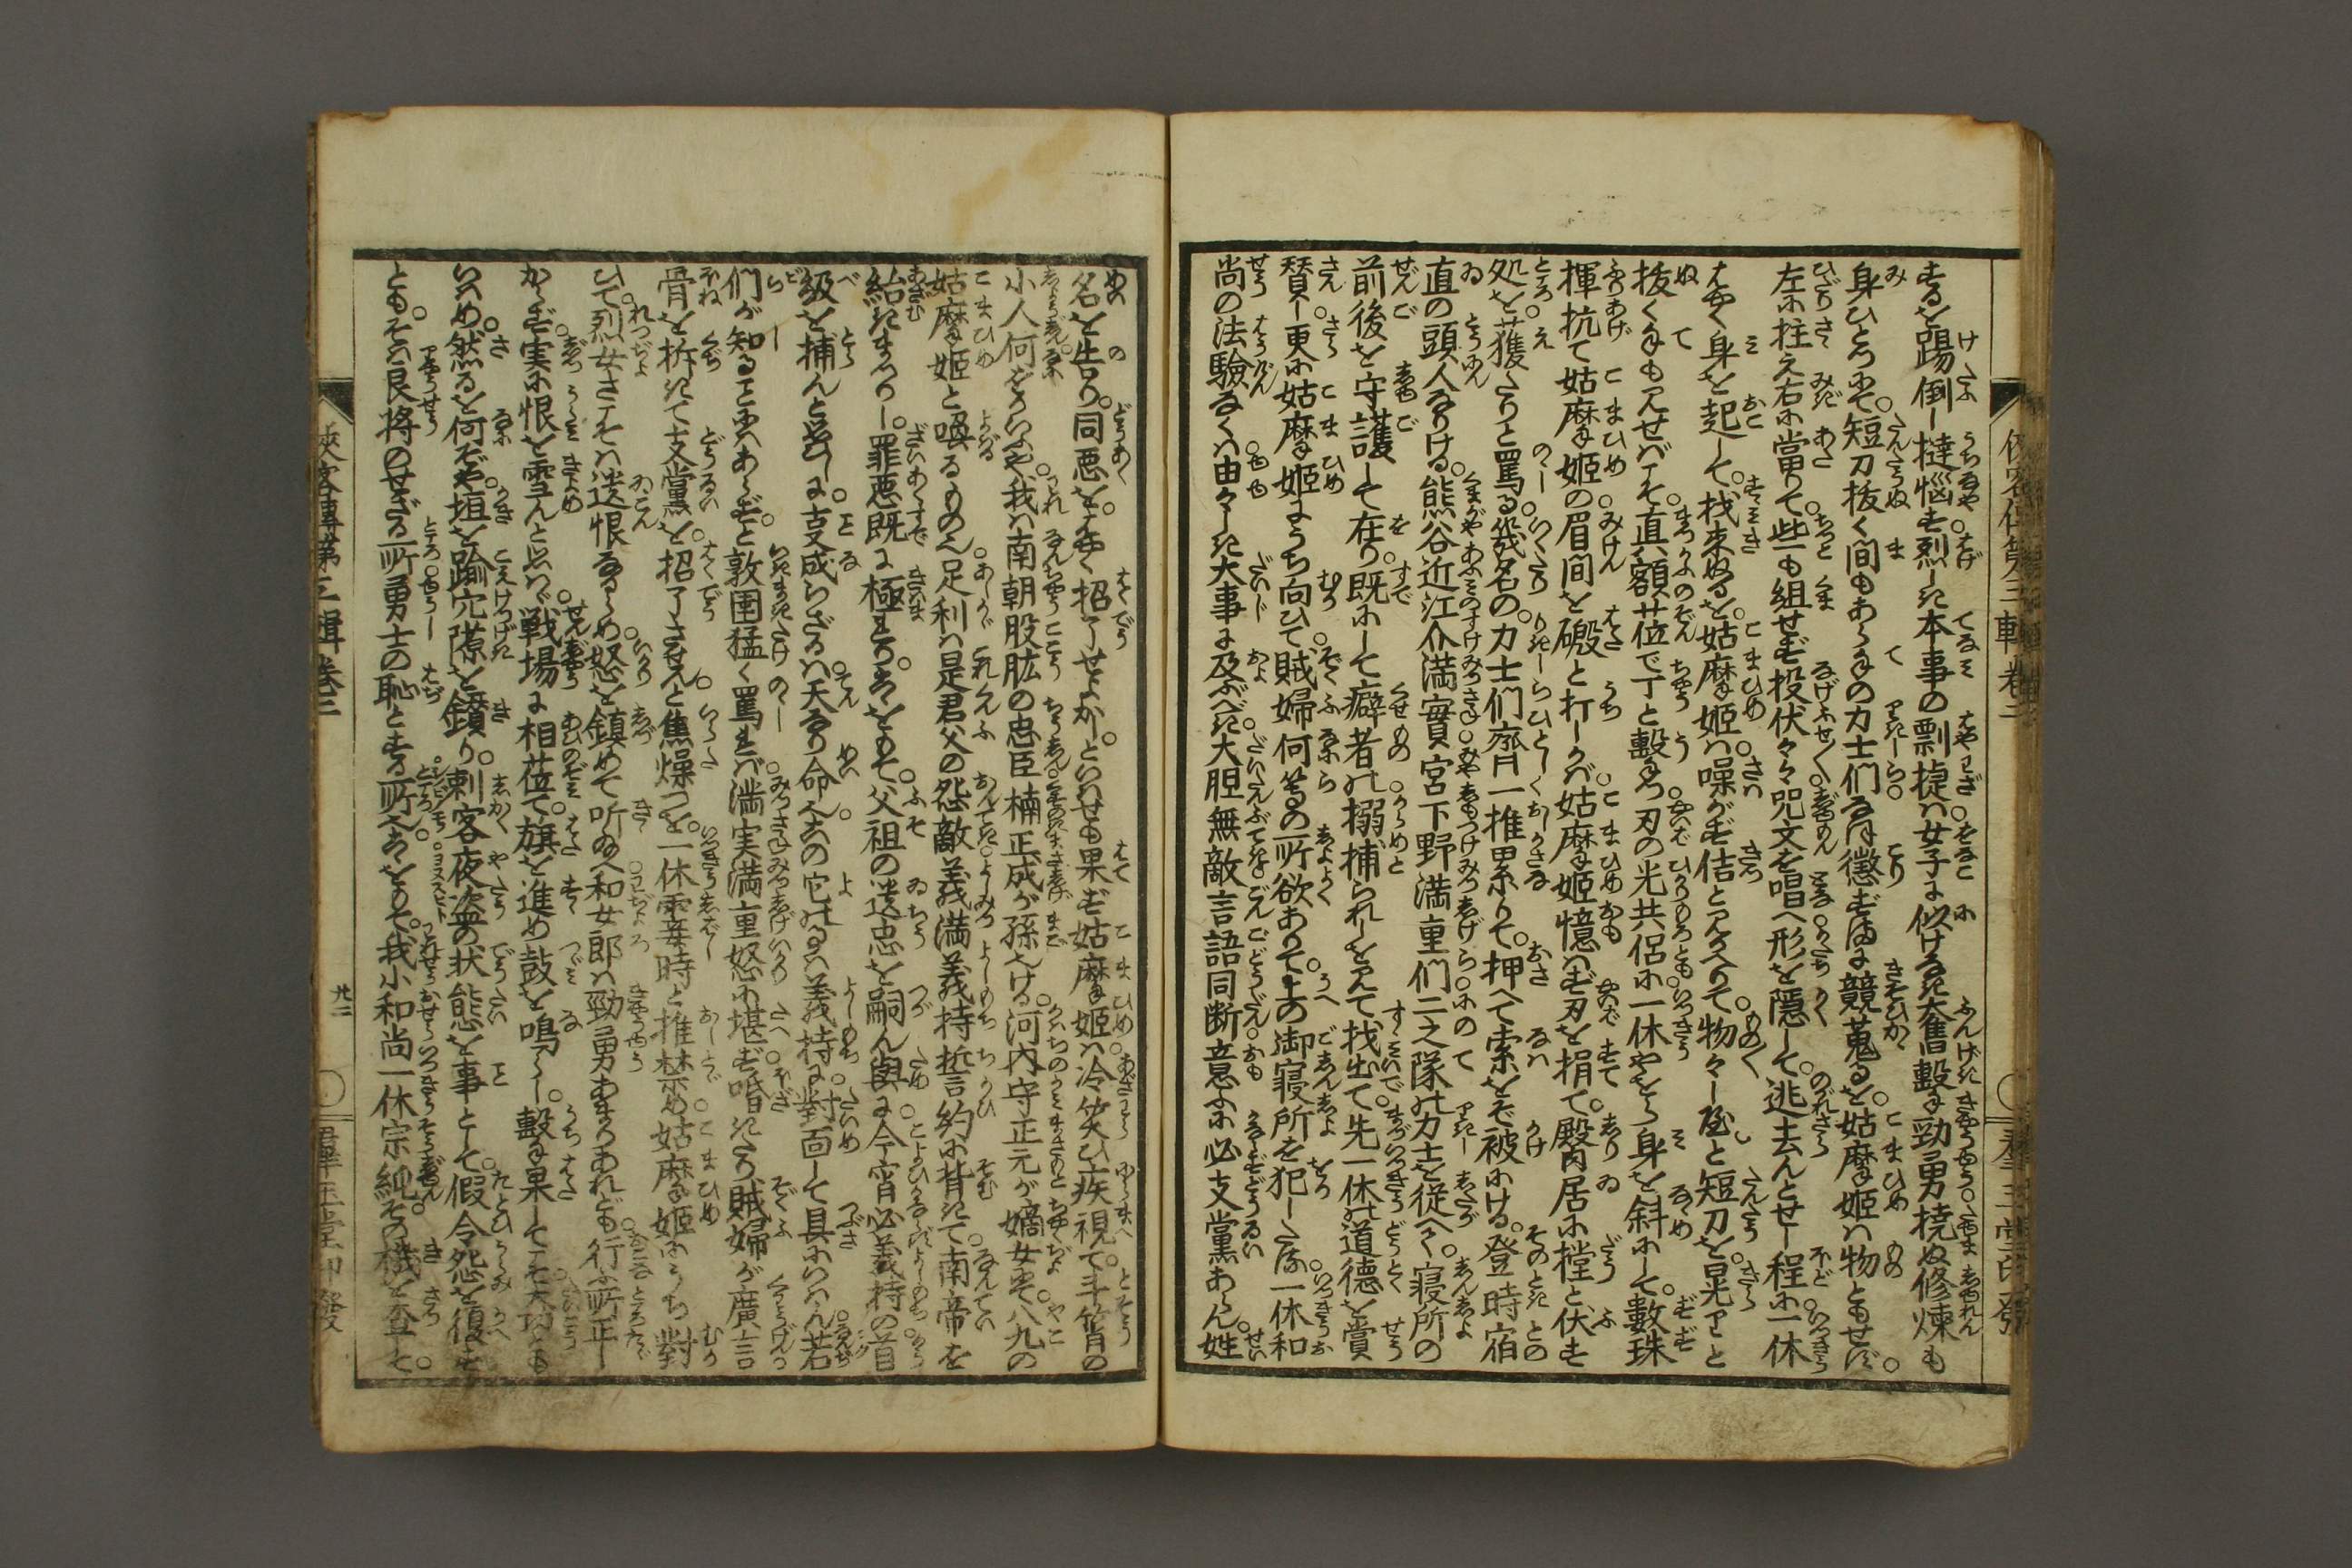 するを踢倒し撻惱す烈しき本事の剽捷は女子に似げなき大奮擊勁勇撓ぬ修煉も
身ひとつにて短刀抜く間もあらねの力士們なほ懲ずまに競蒐るを姑摩姫は物ともせず
左に柱え右に當りて些も組せず投伏々々咒文を唱へ形を隱して逃去んとせし程に一休
はやく身を起して找来ぬるを姑摩姫は噪がず佶と見かへりて物々しやと短刀を晃りと
抜く手も見せばこそ直額望て丁と擊つ刃の光共侶に一休やをら身を斜にして數珠
揮抗て姑摩姫の眉間を礑と打しかば姑摩姫憶はず刃を捐て殿居に撞と伏す
処を獲たりと罵る幾名の力士們齊一推累りて押へて索をぞ被にける登時宿
直の頭人なりける熊谷近江介満實宮下野満重們二之隊の力士を従へて寝所の
前後を守護して在り既にして癖者の搦捕られしを見て找出て先一休の道德を賞
賛し更に姑摩姫にうち向ひて賊婦何等の所欲ありて上の御寝所を犯したる一休和
尚の法驗なくは由々しき大事に及ぶべき大胆無敵言語同断意ふに必支黨あらん姓
名を告り同惡をはやく招了せよかしといはせも果ず姑摩姫は冷笑ひ疾視て斗筲の
小人何をかいふや我は南朝股肱の忠臣楠正成が孫なける河内守正元が嫡女にて八九の
姑摩姫と喚るゝものへ足利は是君父の怨敵義満義持誓約に背きて南帝を
紿きまつりし罪惡既に極まりたるをもて父祖の遺忠を嗣ん與に今宵必義持の首
級を捕んと思ひしに支成らざるは天なり命なりその它のよしは義持に對面して具にいはん若
們が知ることにあらずと敦圉猛く罵れば満実満重怒に堪ず噫きたる賊婦が廣言
骨を拆きて支黨を招了させんと焦燥つを一休霎時と推禁め姑摩姫にうち對
ひて烈女さこそは遺恨ならめ怒を鎮めて听ねかし和女郎は勁勇あまりあれども行ふ所正し
からず実に恨を雪んと思はゞ戦場に相莅て旗を進め鼓を鳴らし擊も果してこそ大功とも
いはめ然るを何ぞや垣を踰穴隙を鑚り刺客夜盗の状態を事として假令怨を復すと
ともそは良将のせざる所勇士の恥とする所なるをもて我小和尚一休宗純その機を查して
俠客傳第三輯卷三
廿三